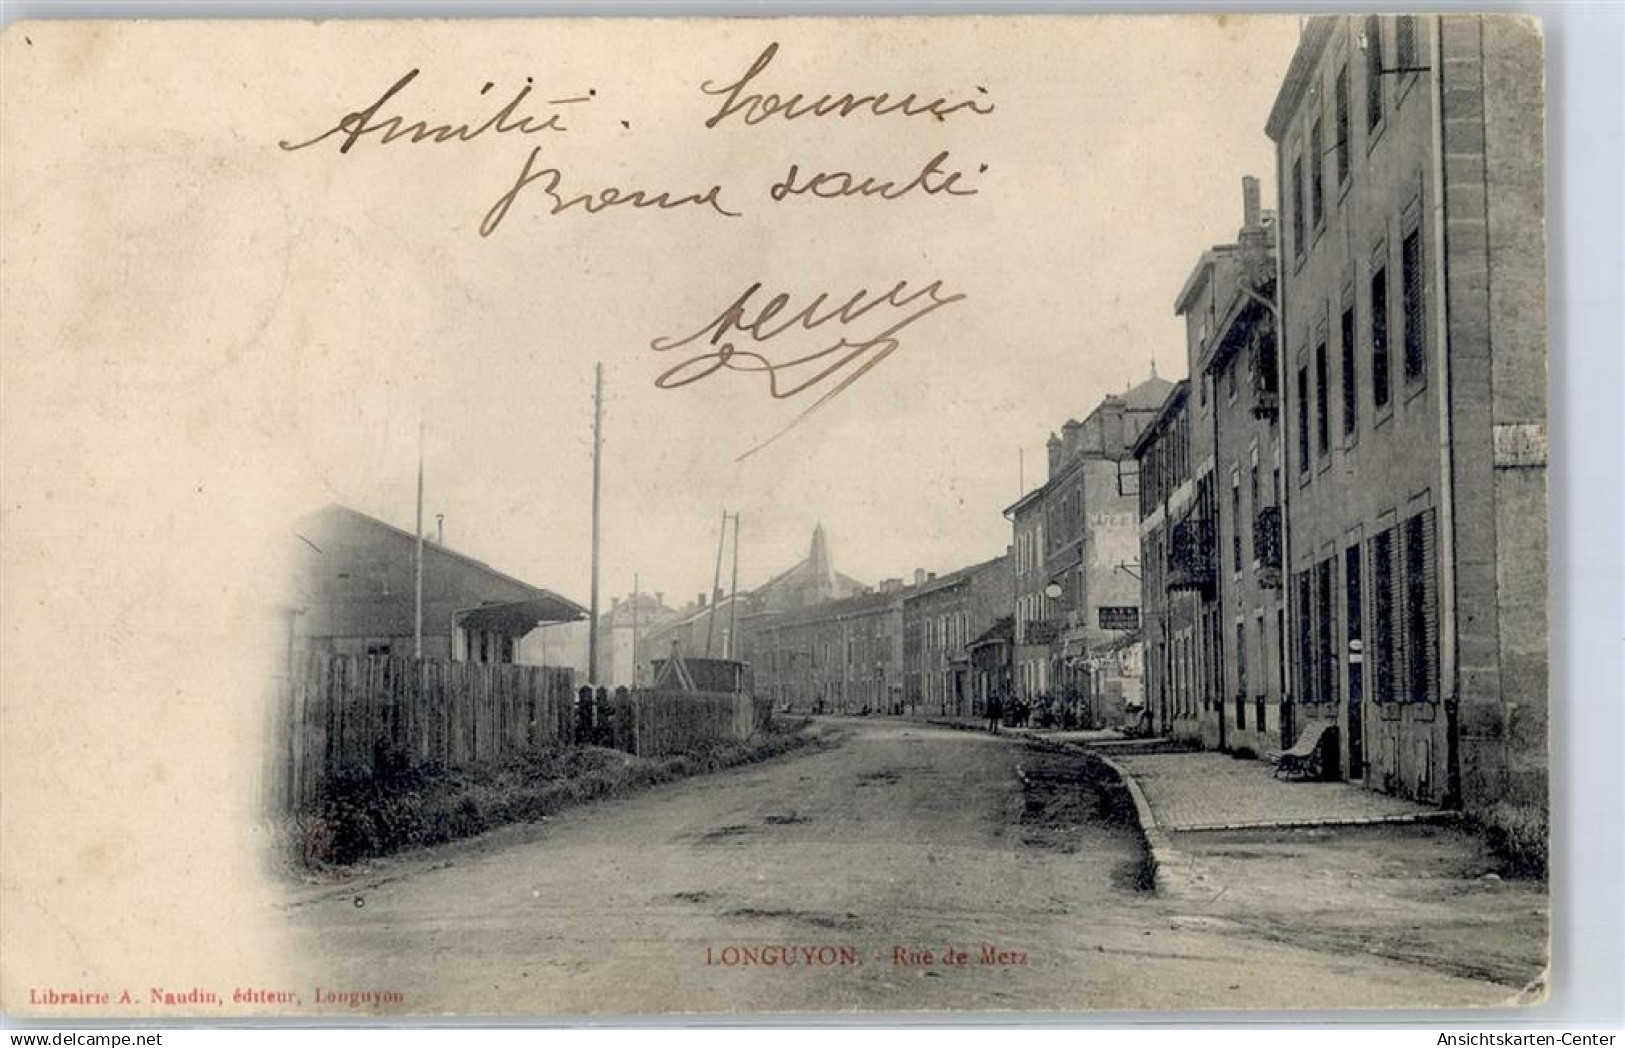 Amitié. Souvenir
Bonne santé
Henry
CAFE
LONGUYON. - Rue de Metz
Librairie A. Naudin, éditeur, Longuyon
delcampe.net
Ansichtskarten-Center